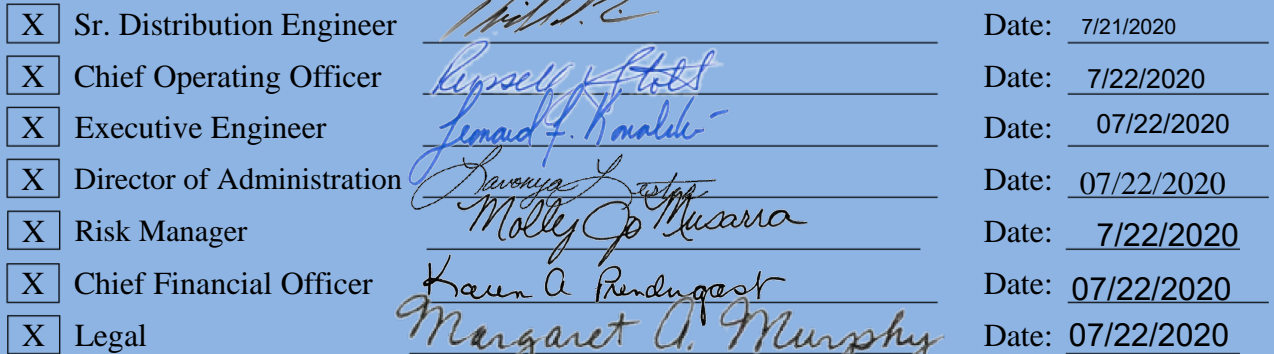 X Sr. Distribution Engineer Date: 7/21/2020
X Chief Operating Officer Russell Stoll Date: 7/22/2020
X Executive Engineer Leonard F. Kowalski Date: 07/22/2020
X Director of Administration Lavonya Lester Date: 07/22/2020
X Risk Manager Molly Jo Musarra Date: 7/22/2020
X Chief Financial Officer Karen A Prendergast Date: 07/22/2020
X Legal Margaret A. Murphy Date: 07/22/2020